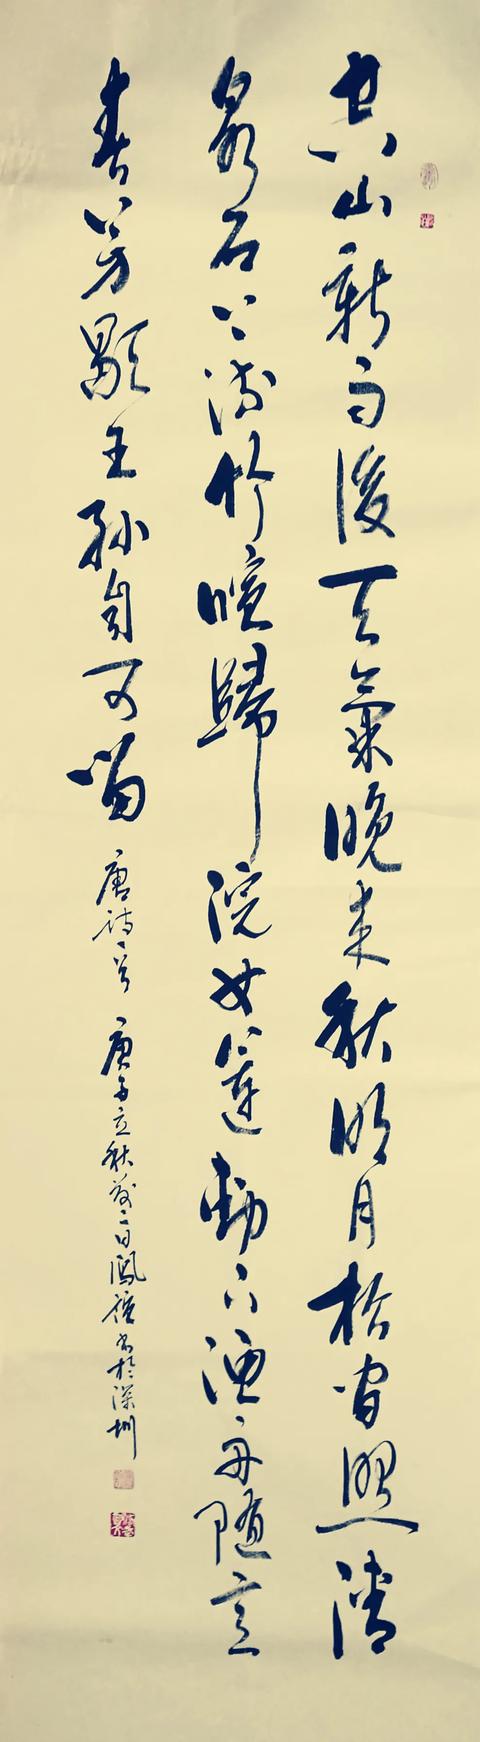 空山新雨後天氣晚来秋明月松間照清
泉石上流竹喧歸浣女蓮動下漁舟隨意
春芳歇王孫自可留 唐詩一首 庚子立秋前二日鳳書於深圳